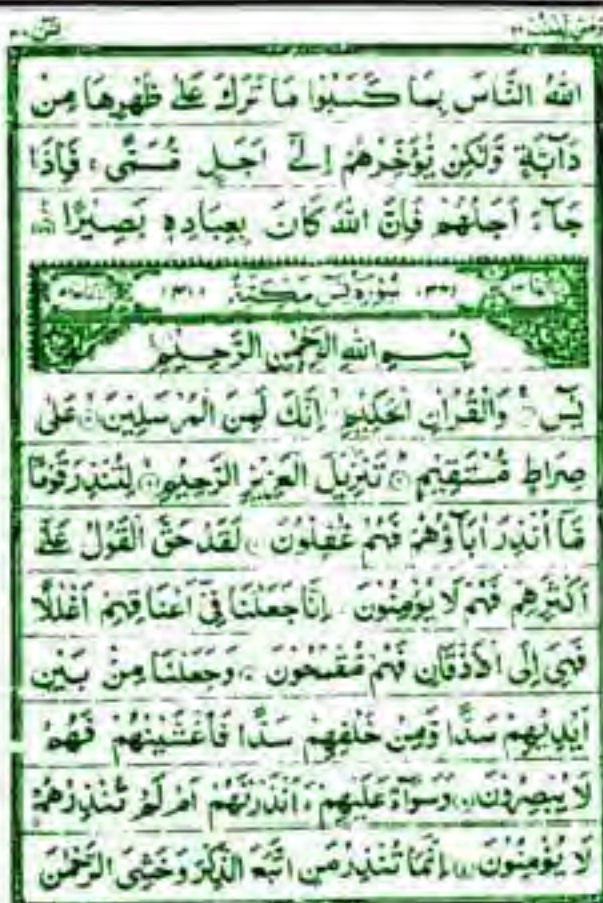 ومن يقنت ٢٢ يٰسٓ
اللهُ النَّاسَ بِمَا كَسَبُوْا مَا تَرَكَ عَلٰى ظَهْرِهَا مِنْ
دَآبَّةٍ وَّلٰكِنْ يُّؤَخِّرُهُمْ اِلٰٓى اَجَلٍ مُّسَمًّى ۚ فَاِذَا
جَآءَ اَجَلُهُمْ فَاِنَّ اللهَ كَانَ بِعِبَادِهٖ بَصِيْرًا
سُوْرَةُ يٰسٓ مَكِّيَّةٌ
بِسْمِ اللهِ الرَّحْمٰنِ الرَّحِيْمِ
يٰسٓ وَالْقُرْاٰنِ الْحَكِيْمِ اِنَّكَ لَمِنَ الْمُرْسَلِيْنَ عَلٰى
صِرَاطٍ مُّسْتَقِيْمٍ تَنْزِيْلَ الْعَزِيْزِ الرَّحِيْمِ لِتُنْذِرَ قَوْمًا
مَّآ اُنْذِرَ اٰبَآؤُهُمْ فَهُمْ غٰفِلُوْنَ لَقَدْ حَقَّ الْقَوْلُ عَلٰٓى
اَكْثَرِهِمْ فَهُمْ لَا يُؤْمِنُوْنَ اِنَّا جَعَلْنَا فِيْٓ اَعْنَاقِهِمْ اَغْلٰلًا
فَهِيَ اِلَى الْاَذْقَانِ فَهُمْ مُّقْمَحُوْنَ وَجَعَلْنَا مِنْۢ بَيْنِ
اَيْدِيْهِمْ سَدًّا وَّمِنْ خَلْفِهِمْ سَدًّا فَاَغْشَيْنٰهُمْ فَهُمْ
لَا يُبْصِرُوْنَ وَسَوَآءٌ عَلَيْهِمْ ءَاَنْذَرْتَهُمْ اَمْ لَمْ تُنْذِرْهُمْ
لَا يُؤْمِنُوْنَ اِنَّمَا تُنْذِرُ مَنِ اتَّبَعَ الذِّكْرَ وَخَشِيَ الرَّحْمٰنَ